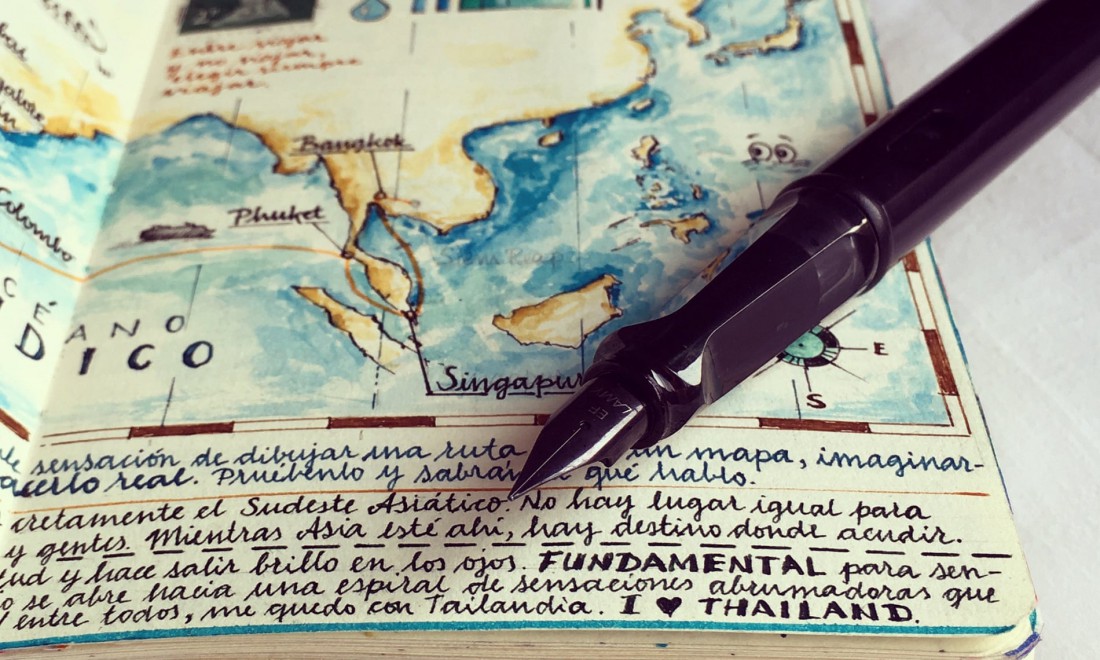 Entre viajar
y no viajar,
elegir siempre
viajar.
Bangkok
Phuket
Colombo
Siem Reap
OCÉANO
ÍNDICO
Singapur
E
S
EF
LAMY
sensación de dibujar una ruta un mapa, imaginar-
hacerlo real. Pruébenlo y sabrán qué hablo.
cretamente el Sudeste Asiático. No hay lugar igual para
y gentes. Mientras Asia esté ahí, hay destino donde acudir.
tud y hace salir brillo en los ojos. FUNDAMENTAL para sen-
o se abre hacia una espiral de sensaciones abrumadoras que
entre todos, me quedo con Tailandia. I ♥ THAILAND.